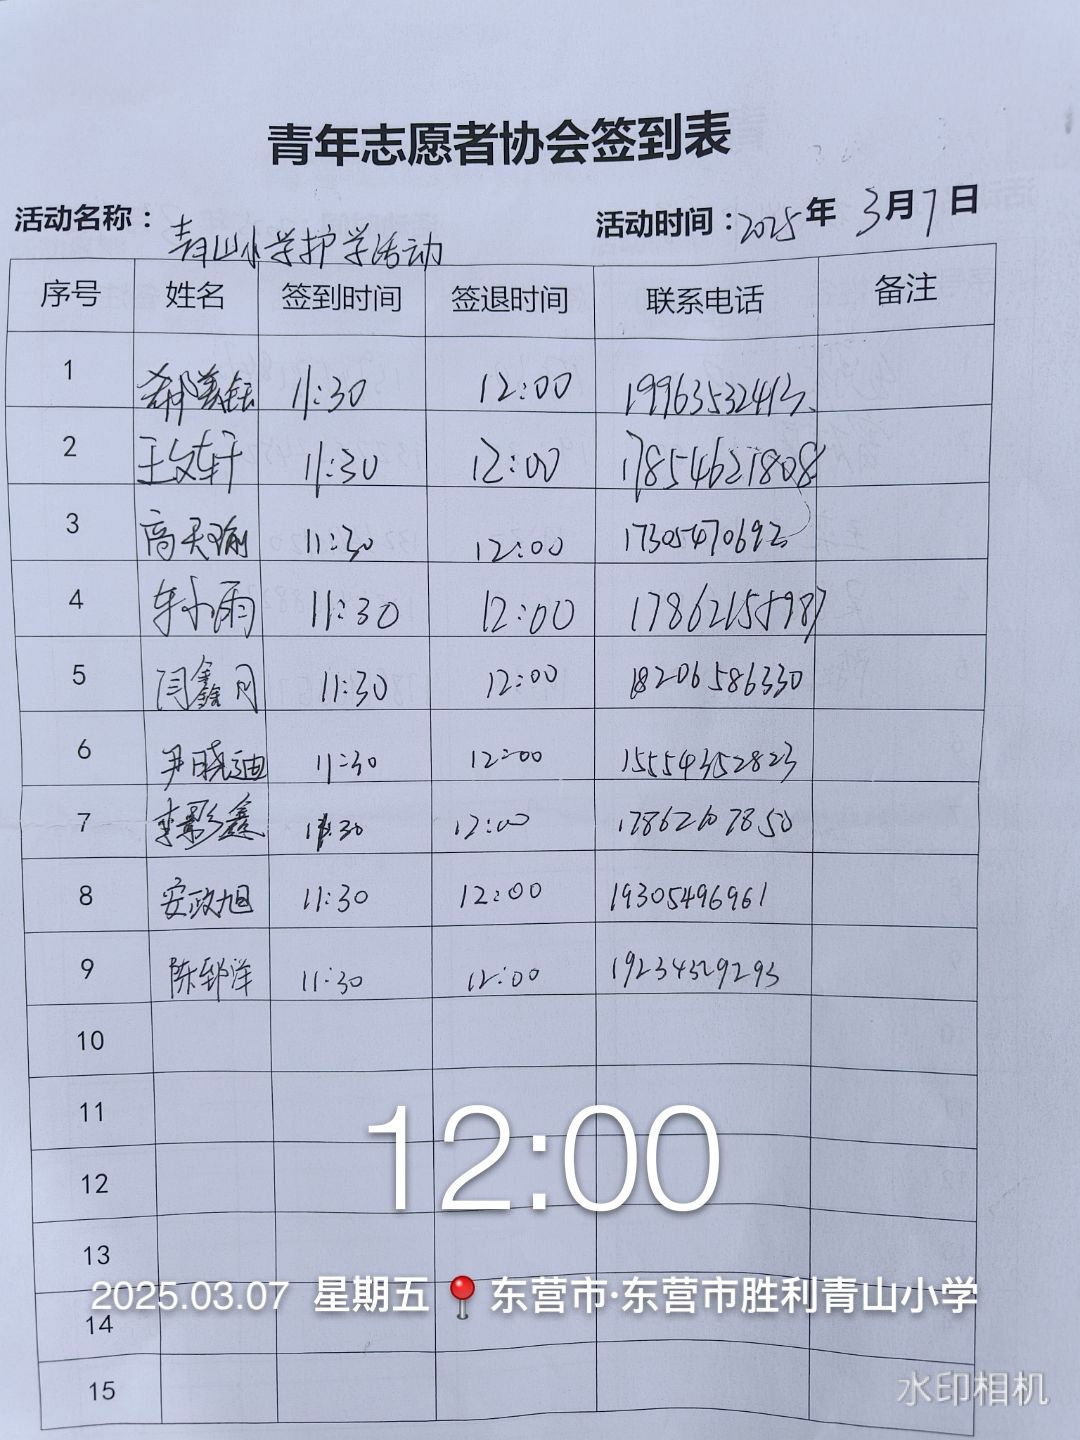 青年志愿者协会签到表
活动名称：青山小学护学活动
活动时间：2025年3月7日
序号 姓名 签到时间 签退时间 联系电话 备注
1 郝美钰 11:30 12:00 19963532413
2 王文轩 11:30 12:00 17854621808
3 高天瑜 11:30 12:00 17305470692
4 车小雨 11:30 12:00 17862158987
5 闫鑫月 11:30 12:00 18206586330
6 尹晓迪 11:30 12:00 15554352823
7 李彩鑫 11:30 12:00 17862107850
8 安政旭 11:30 12:00 19305496961
9 陈郅洋 11:30 12:00 19234329293
10
11
12
13
14
15
12:00
2025.03.07 星期五 东营市·东营市胜利青山小学
水印相机